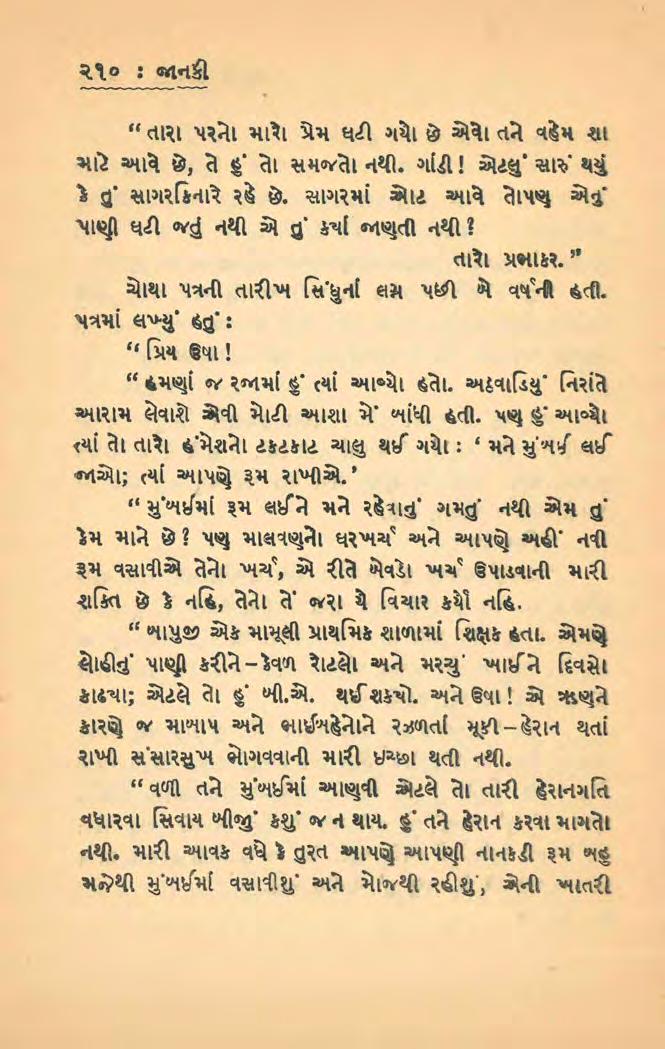 ૨૧૦ : જાનકી
“ તારા પરનો મારો પ્રેમ ઘટી ગયો છે એવો તને વહેમ શા
માટે આવે છે, તે હું તો સમજતો નથી. ગાંડી ! એટલું સારું થયું
કે તું સાગરકિનારે રહે છે. સાગરમાં ઓટ આવે તોપણ એનું
પાણી ઘટી જતું નથી એ તું કર્યાં જાણતી નથી ?
તારો પ્રભાકર. ”
ચોથા પત્રની તારીખ સિંધુનાં લગ્ન પછી બે વર્ષની હતી.
પત્રમાં લખ્યું હતું :
“ પ્રિય ઉષા !
“ હમણાં જ રજામાં હું ત્યાં આવ્યો હતો. અઠવાડિયું નિરાંતે
આરામ લેવાશે એવી મોટી આશા મેં બાંધી હતી. પણ હું આવ્યો
ત્યાં તો તારો હંમેશનો ટકટકાટ ચાલુ થઈ ગયો : ‘ મને મુંબઈ લઈ
જાઓ; ત્યાં આપણે રૂમ રાખીએ. ’
“ મુંબઈમાં રૂમ લઈને મને રહેવાનું ગમતું નથી એમ તું
કેમ માને છે ? પણ માલવણનો ઘરખર્ચ અને આપણે અહીં નવી
રૂમ વસાવીએ તેનો ખર્ચ, એ રીતે બેવડો ખર્ચ ઉપાડવાની મારી
શક્તિ છે કે નહિ, તેનો તેં જરા યે વિચાર કર્યો નહિ.
“ બાપુજી એક મામૂલી પ્રાથમિક શાળામાં શિક્ષક હતા. એમણે
લોહીનું પાણી કરીને – કેવળ રોટલો અને મરચું ખાઈને દિવસો
કાઢયા; એટલે તો હું બી.એ. થઈ શકયો. અને ઉષા ! એ ઋણને
કારણે જ માબાપ અને ભાઈબહેનોને રઝળતાં મૂકી – હેરાન થતાં
રાખી સંસારસુખ ભોગવવાની મારી ઇચ્છા થતી નથી.
“ વળી તને મુંબઈમાં આણવી એટલે તો તારી હેરાનગતિ
વધારવા સિવાય બીજું કશું જ ન થાય. હું તને હેરાન કરવા માગતો
નથી. મારી આવક વધે કે તુરત આપણે આપણી નાનકડી રૂમ બહુ
મઝેથી મુંબઈમાં વસાવીશું અને મોજથી રહીશું, એની ખાતરી